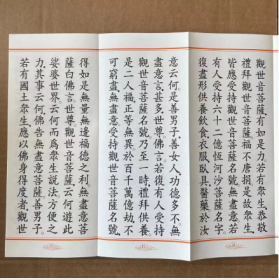 觀世音菩薩有如是力若有眾生恭敬
禮拜觀世音菩薩福不唐捐是故眾生
皆應受持觀世音菩薩名號無盡意若
有人受持六十二億恒河沙菩薩名字
復盡形供養飲食衣服臥具醫藥於汝
意云何是善男子善女人功德多不無
盡意言甚多世尊佛言若復有人受持
觀世音菩薩名號乃至一時禮拜供養
是二人福正等無異於百千萬億劫不
可窮盡無盡意受持觀世音菩薩名號
得如是無量無邊福德之利無盡意菩
薩白佛言世尊觀世音菩薩云何遊此
娑婆世界云何而為眾生說法方便之
力其事云何佛告無盡意菩薩善男子
若有國土眾生應以佛身得度者觀世